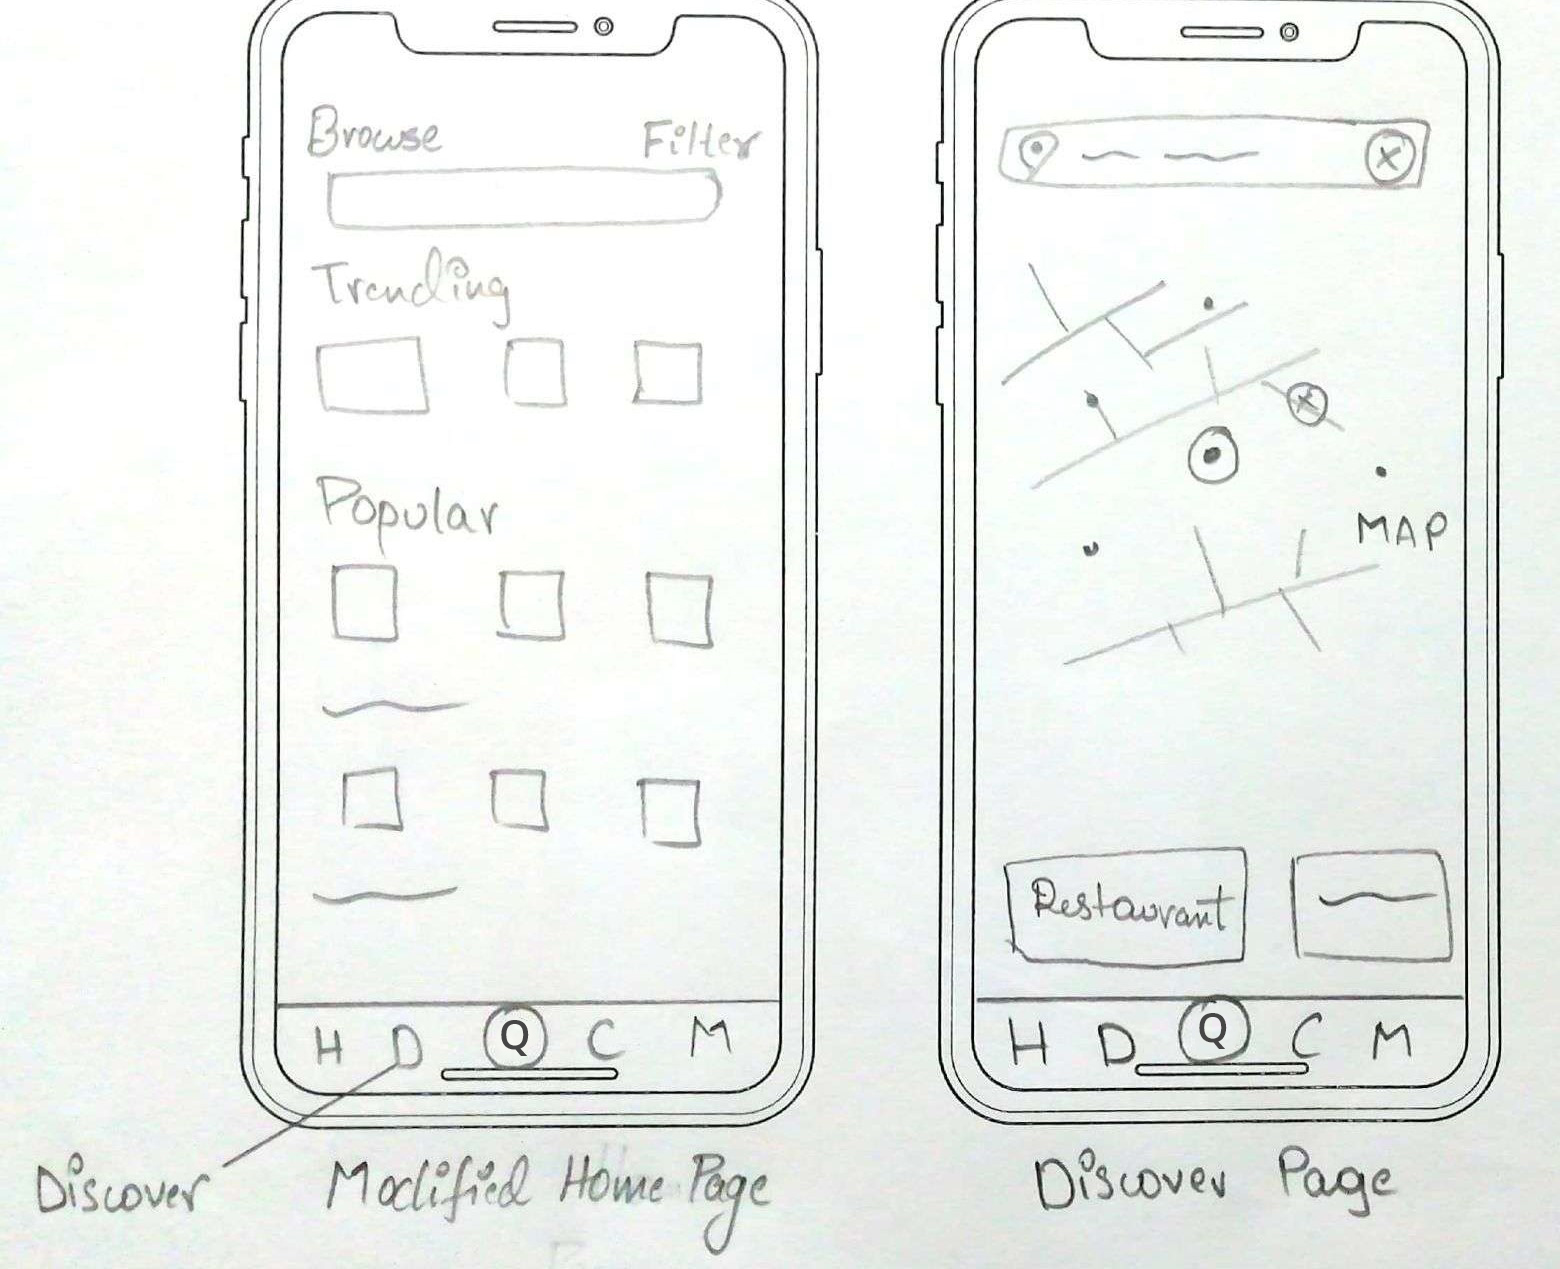 Browse Filter
Trending
Popular
H D Q C M
Discover
Modified Home Page
MAP
Restaurant
H D Q C M
Discover Page